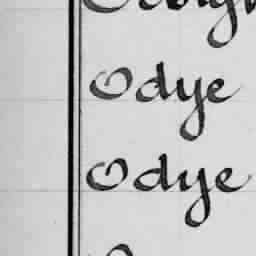 Odye
Odye